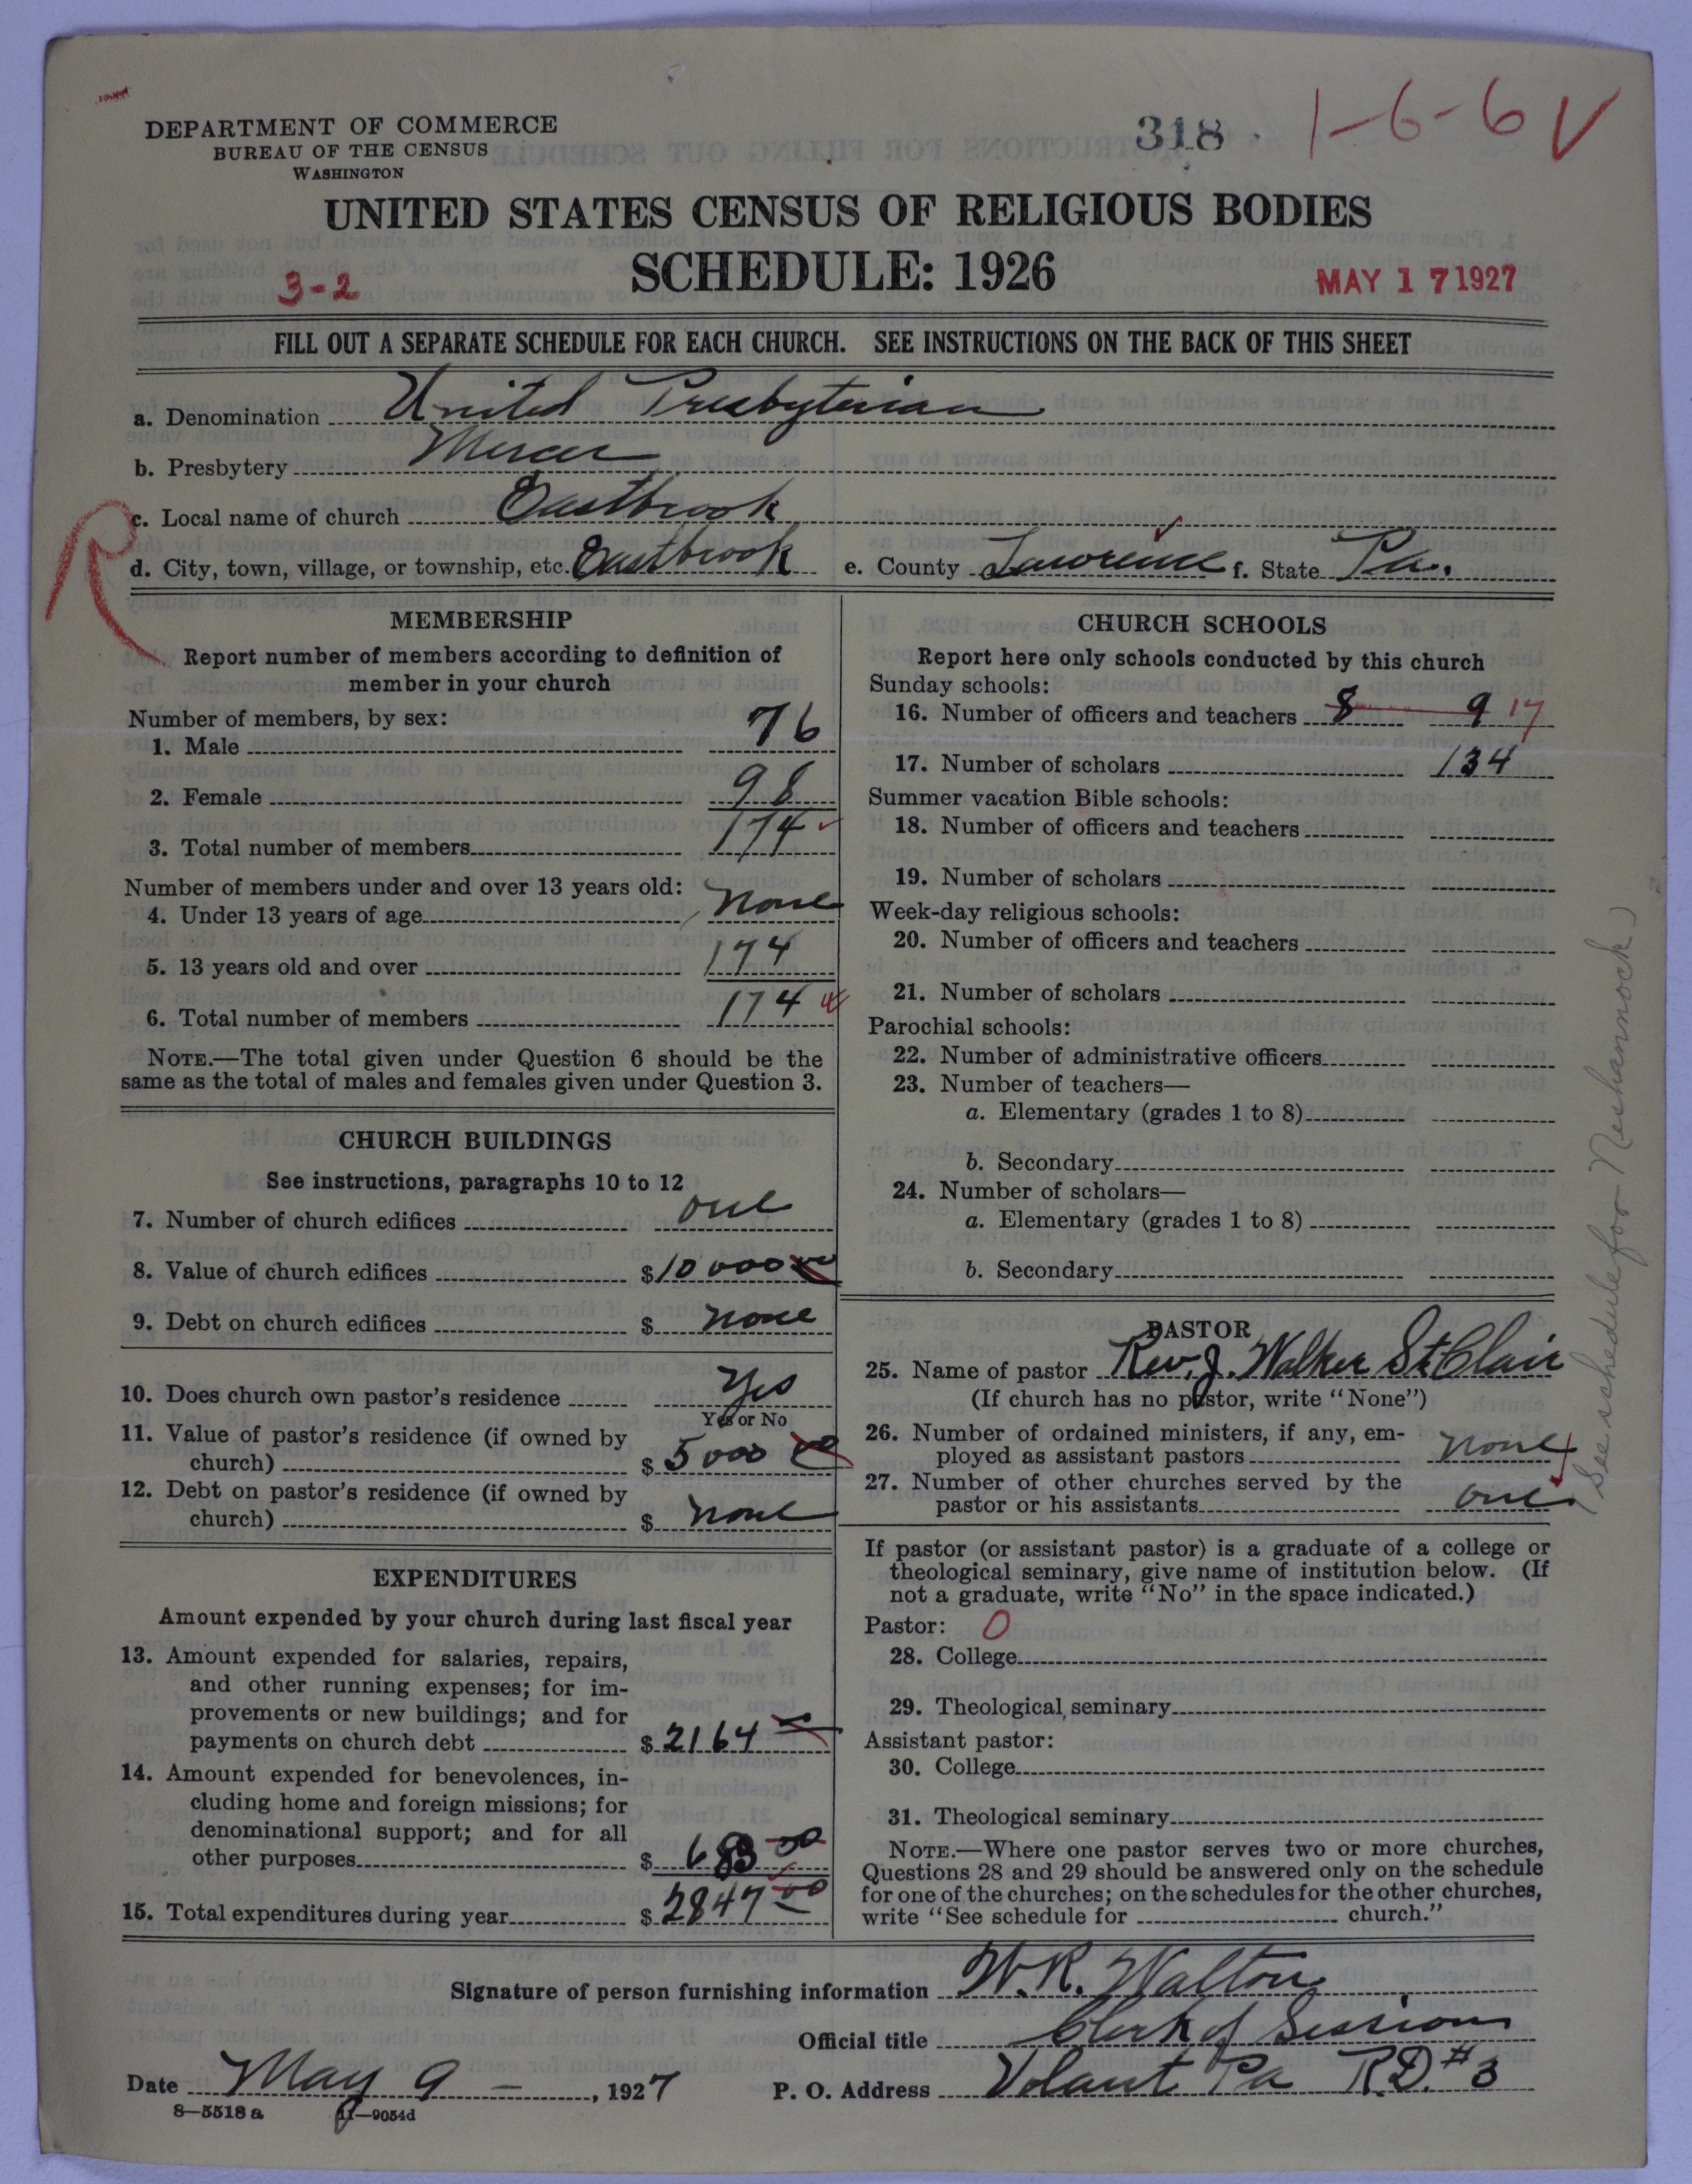 DEPARTMENT OF COMMERCE
BUREAU OF THE CENSUS
WASHINGTON
318
1-6-6 V
UNITED STATES CENSUS OF RELIGIOUS BODIES
SCHEDULE: 1926
3-2
MAY 17 1927
FILL OUT A SEPARATE SCHEDULE FOR EACH CHURCH. SEE INSTRUCTIONS ON THE BACK OF THIS SHEET
a. Denomination United Presbyterian
b. Presbytery Mercer
R
c. Local name of church Eastbrook
d. City, town, village, or township, etc. Eastbrook e. County Lawrence f. State Pa.
MEMBERSHIP
Report number of members according to definition of
member in your church
Number of members, by sex:
1. Male 76
2. Female 98
3. Total number of members 174
Number of members under and over 13 years old:
4. Under 13 years of age none
5. 13 years old and over 174
6. Total number of members 174
NOTE.—The total given under Question 6 should be the
same as the total of males and females given under Question 3.
CHURCH BUILDINGS
See instructions, paragraphs 10 to 12
7. Number of church edifices one
8. Value of church edifices $10 000 00
9. Debt on church edifices $ none
10. Does church own pastor's residence Yes
Yes or No
11. Value of pastor's residence (if owned by
church) $ 5 000 00
12. Debt on pastor's residence (if owned by
church) $ none
EXPENDITURES
Amount expended by your church during last fiscal year
13. Amount expended for salaries, repairs,
and other running expenses; for im-
provements or new buildings; and for
payments on church debt $ 2164
14. Amount expended for benevolences, in-
cluding home and foreign missions; for
denominational support; and for all
other purposes $ 683 00
15. Total expenditures during year $ 2847 00
CHURCH SCHOOLS
Report here only schools conducted by this church
Sunday schools:
16. Number of officers and teachers 8 9 17
17. Number of scholars 134
Summer vacation Bible schools:
18. Number of officers and teachers
19. Number of scholars
Week-day religious schools:
20. Number of officers and teachers
21. Number of scholars
Parochial schools:
22. Number of administrative officers
23. Number of teachers—
a. Elementary (grades 1 to 8)
b. Secondary
24. Number of scholars—
a. Elementary (grades 1 to 8)
b. Secondary
PASTOR
25. Name of pastor Rev. J. Walker St Clair
(If church has no pastor, write "None")
26. Number of ordained ministers, if any, em-
ployed as assistant pastors none
27. Number of other churches served by the
pastor or his assistants one
(See schedule for Neshannock)
If pastor (or assistant pastor) is a graduate of a college or
theological seminary, give name of institution below. (If
not a graduate, write "No" in the space indicated.)
Pastor: O
28. College
29. Theological seminary
Assistant pastor:
30. College
31. Theological seminary
NOTE.—Where one pastor serves two or more churches,
Questions 28 and 29 should be answered only on the schedule
for one of the churches; on the schedules for the other churches,
write "See schedule for church."
Signature of person furnishing information W. R. Walton
Official title Clerk of Session
Date May 9 - , 1927 P. O. Address Volant Pa R.D. #3
8—5518 a 11—9054d